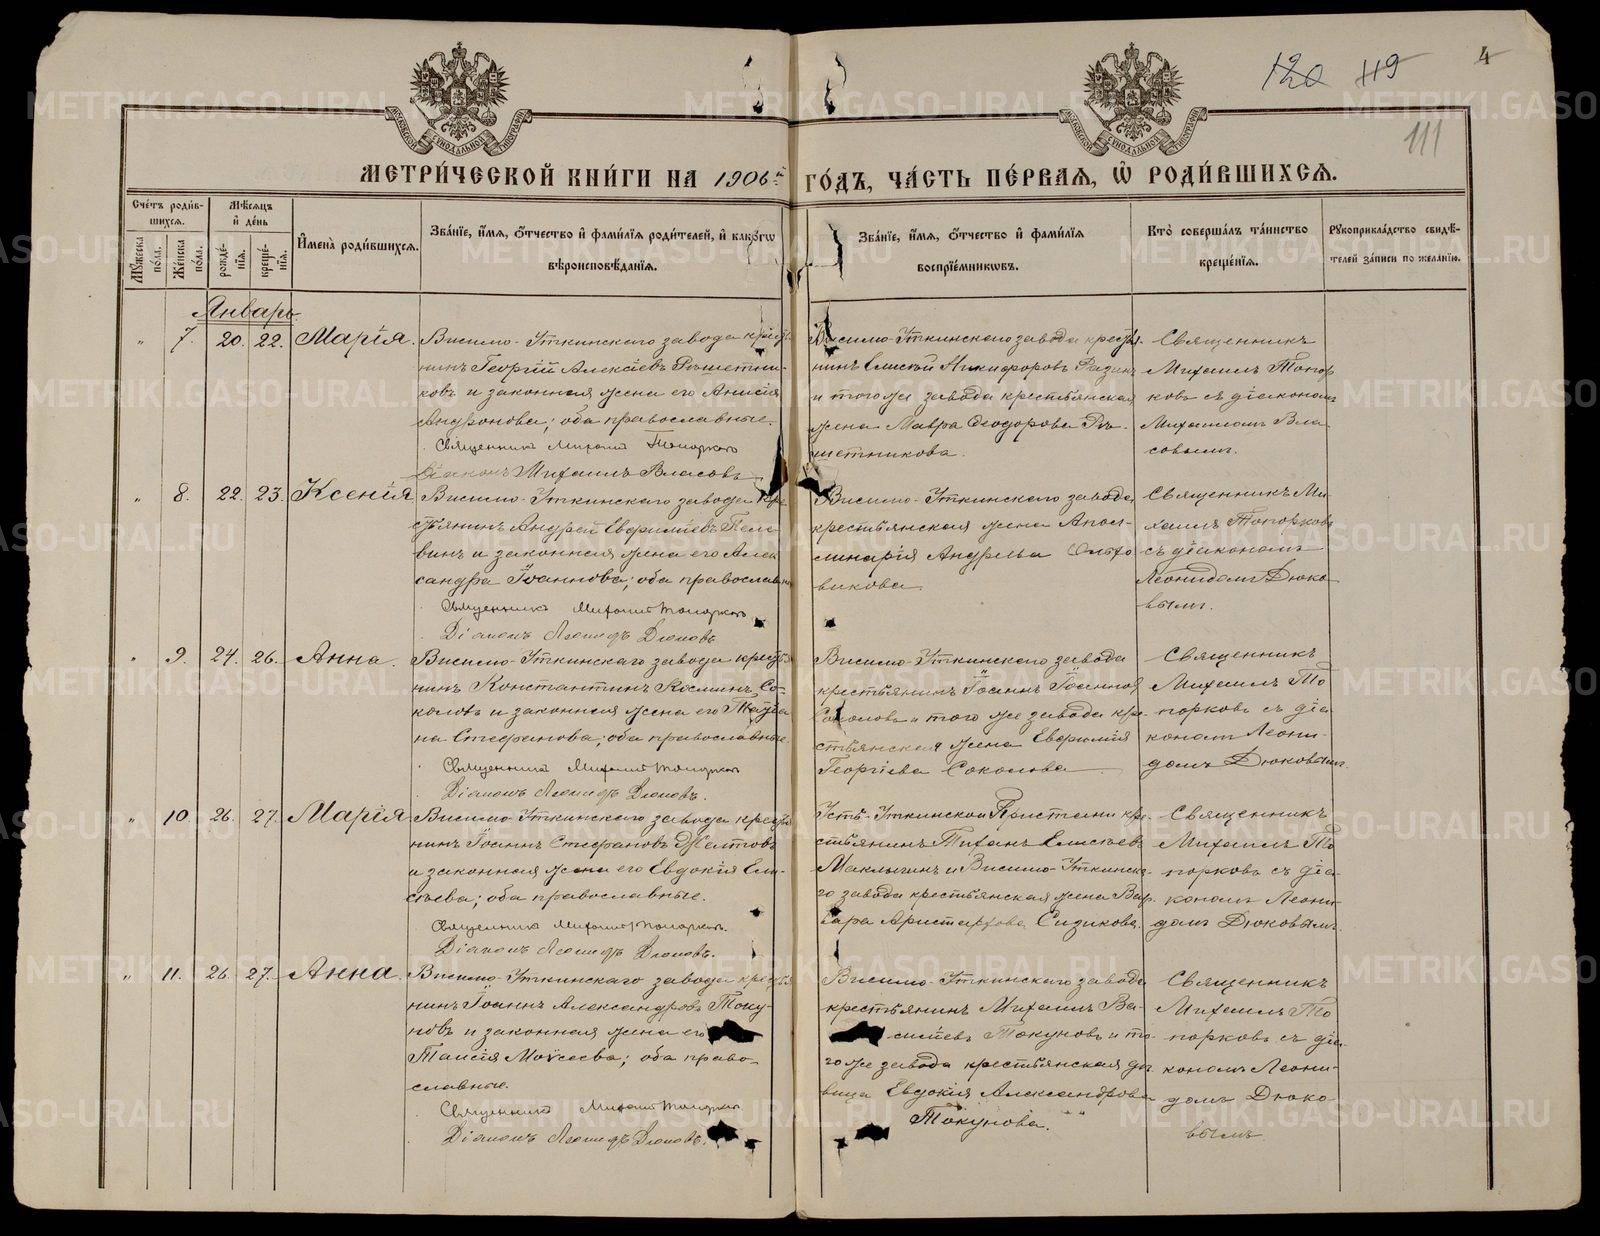 120 119 4
111
МЕТРИЧЕСКОЙ КНИГИ НА 1906й ГОДЪ, ЧАСТЬ ПЕРВАЯ, Ѡ РОДИВШИХСЯ.
Счетъ родив-
шихся.
Мѣсяцъ
и день
Мужеска пола.
Женска пола.
рожде-
нія.
креще-
нія.
Имена родившихся.
Званіе, имя, отчество и фамилія родителей, и какогѡ
вѣроисповѣданія.
Званіе, имя, отчество и фамилія
воспріемниковъ.
Кто совершалъ таинство
крещенія.
Рукоприкладство свидѣ-
телей записи по желанію.
Январь.
" 7. 20. 22. Марія.
Висимо-Уткинскаго завода кресть
нинъ Георгій Алексѣевъ Рѣшетни-
ковъ и законная жена его Анисія
Андронова; оба православные.
Священникъ Михаилъ Топорковъ
Діаконъ Михаилъ Власовъ
Висимо-Уткинскаго завода крестья
нинъ Елисей Никифоровъ Разин
и того же завода крестьянская
жена Мавра Ѳеодорова Рѣ-
шетникова.
Священникъ
Михаилъ Топор
ковъ съ діакономъ
Михаиломъ Вла-
совымъ.
" 8. 22. 23. Ксенія
Висимо-Уткинскаго завода кре
стьянинъ Андрей Евфиміевъ Пеле
винъ и законная жена его Алек
сандра Іоаннова; оба православн
Священникъ Михаилъ Топорковъ
Діаконъ Леонидъ Дюковъ
Висимо-Уткинскаго завода
крестьянская жена Апол-
линарія Андреева
викова
Священникъ Ми-
хаилъ Топорковъ
съ діакономъ
Леонидомъ Дюко
вымъ.
" 9. 24. 26. Анна.
Висимо-Уткинскаго завода крестья
нинъ Константинъ Косминъ Со-
коловъ и законная жена его Татія
на Стефанова; оба православные.
Священникъ Михаилъ Топорковъ
Діаконъ Леонидъ Дюковъ.
Висимо-Уткинскаго завода
крестьянинъ Іоаннъ Іоанновъ
Соколовъ и того же завода кре-
стьянская жена Евфимія
Георгіева Соколова
Священникъ
Михаилъ То
порковъ съ діа
кономъ Леони-
домъ Дюковымъ.
" 10. 26. 27. Марія
Висимо-Уткинскаго завода крестья
нинъ Іоаннъ Стефановъ Желтовъ
и законная жена его Евдокія Ели-
сѣева; оба православные.
Священникъ Михаилъ Топорковъ.
Діаконъ Леонидъ Дюковъ.
Усть-Уткинской Пристани кре-
стьянинъ Тихонъ Елисѣевъ
Маклыгинъ и Висимо-Уткинска-
го завода крестьянская жена Вар-
вара Аристархова Сизикова.
Священникъ
Михаилъ То
порковъ съ діа-
кономъ Леони-
домъ Дюковымъ.
" 11. 26. 27. Анна.
Висимо-Уткинскаго завода крестья
нинъ Іоаннъ Александровъ Току-
новъ и законная жена его
Таисія Моѵсеева; оба право-
славные.
Священникъ Михаилъ Топорковъ
Діаконъ Леонидъ Дюковъ.
Висимо-Уткинскаго завода
крестьянинъ Михаилъ Ва-
сильевъ Токуновъ и то-
го же завода крестьянская дѣ
вица Евдокія Александрова
Токунова.
Священникъ
Михаилъ То
порковъ съ діа-
кономъ Леони-
домъ Дюко
вымъ
METRIKI.GASO-URAL.RU